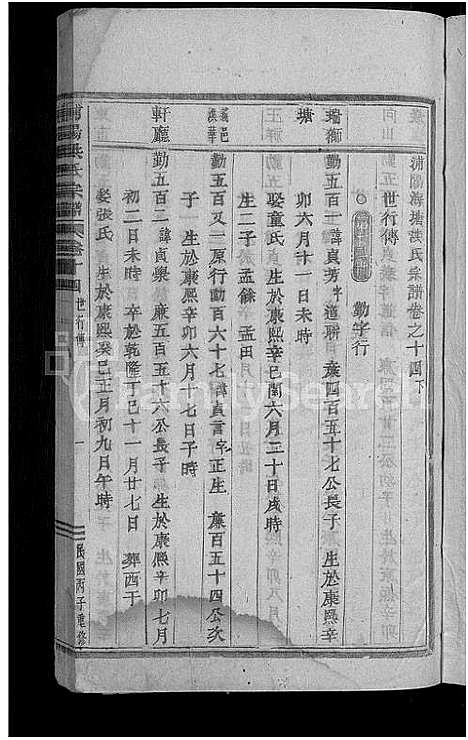 浦陽海塘洪氏宗譜卷之十四下
世行傳
勤字行
瑞獅塘
勤五百一諱貞芳字道聯 廉四百五十七公長子 生於康熙辛
卯六月十一日未時
娶童氏 生於康熙辛巳閏六月三十日戌時
生二子 孟餘 孟田
義邑溪華
勤五百又一原行勤百六十七諱貞言字正生 廉百五十四公次
子 生於康熙辛卯六月 七日子時
軒廳
勤五百二諱貞榮 廉五百五十六公長子 生於康熙辛卯七月
初二日未時 卒於乾隆丁巳十一月廿七日 葬西于
娶張氏 生於康熙癸巳正月初九日午時
浦陽洪氏宗譜
卷十四
世行傳
一
民國丙子重修
FamilySearch